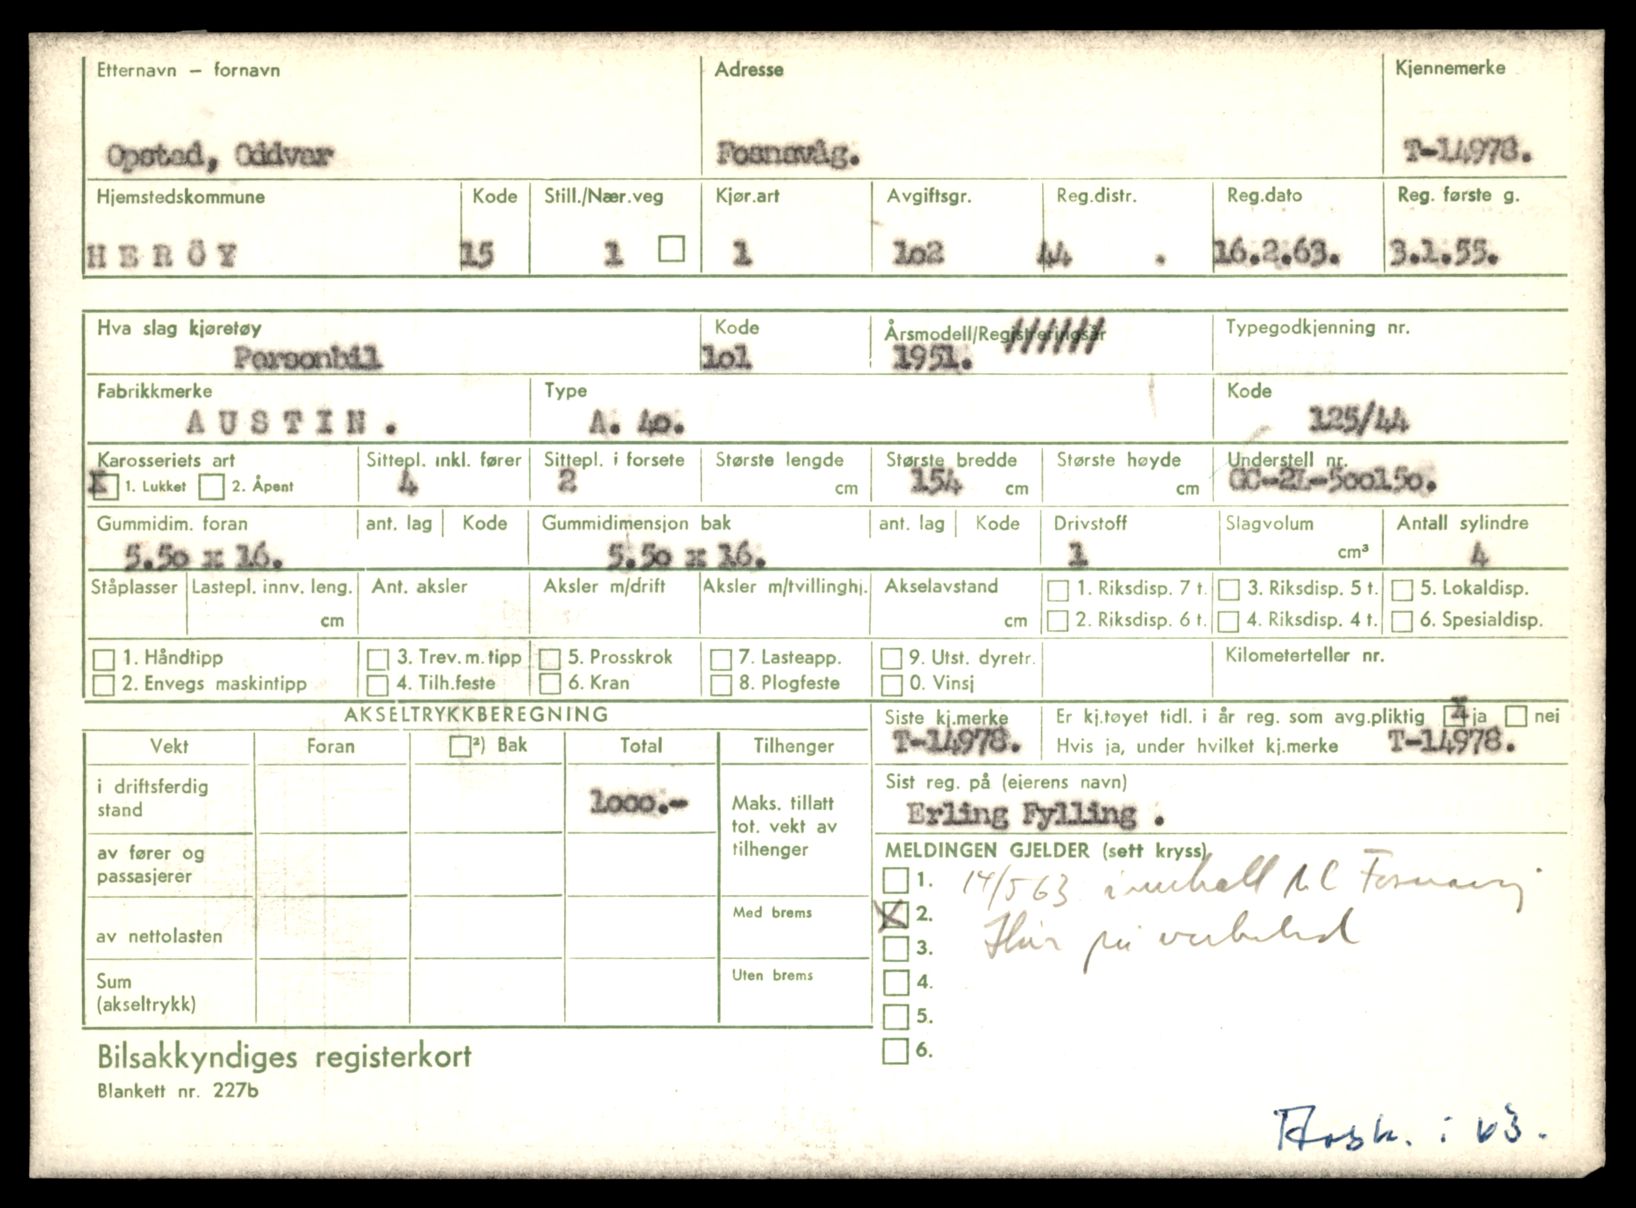 Etternavn — fornavn Adresse Kjennemerke
Opstad, Oddvar Fosnavåg. T-14978.
Hjemstedskommune Kode Still./Nær.veg Kjør.art Avgiftsgr. Reg.distr. Reg.dato Reg. første g.
HERÖY 15 1 1 1o2 44 . 16.2.63. 3.1.55.
Hva slag kjøretøy Kode Årsmodell/Registreringsår Typegodkjenning nr.
Personbil 1o1 1951.
Fabrikkmerke Type Kode
AUSTIN. A. 4o. 125/44
Karosseriets art Sittepl. inkl. fører Sittepl. i forsete Største lengde Største bredde Største høyde Understell nr.
X 1. Lukket 2. Åpent 4 2 cm 154 cm cm GC-2L-5oo15o.
Gummidim. foran ant. lag Kode Gummidimensjon bak ant. lag Kode Drivstoff Slagvolum Antall sylindre
5.5o x 16. 5.5o x 16. 1 cm³ 4
Ståplasser Lastepl. innv. leng. Ant. aksler Aksler m/drift Aksler m/tvillinghj. Akselavstand 1. Riksdisp. 7 t. 3. Riksdisp. 5 t. 5. Lokaldisp.
cm cm 2. Riksdisp. 6 t. 4. Riksdisp. 4 t. 6. Spesialdisp.
1. Håndtipp 3. Trev. m. tipp 5. Prosskrok 7. Lasteapp. 9. Utst. dyretr. Kilometerteller nr.
2. Envegs maskintipp 4. Tilh.feste 6. Kran 8. Plogfeste 0. Vinsj
AKSELTRYKKBEREGNING Siste kj.merke Er kj.tøyet tidl. i år reg. som avg.pliktig X ja nei
T-14978. Hvis ja, under hvilket kj.merke T-14978.
Vekt Foran ²) Bak Total Tilhenger
i driftsferdig stand 1ooo.- Maks. tillatt tot. vekt av tilhenger
Sist reg. på (eierens navn)
Erling Fylling .
av fører og passasjerer
MELDINGEN GJELDER (sett kryss)
1. 14/5 63
X 2.
3. på
4.
5.
6.
av nettolasten Med brems
Sum (akseltrykk) Uten brems
Bilsakkyndiges registerkort
Blankett nr. 227b
i 63.